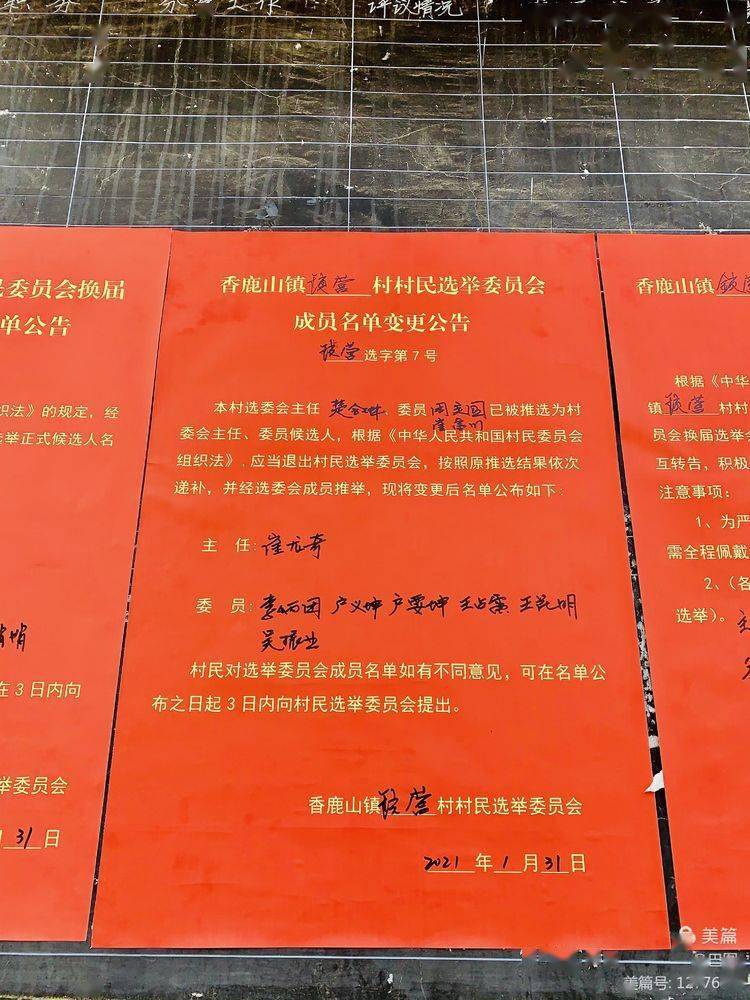 评议情况
民委员会换届
单公告
织法》的规定，经
选举正式候选人名
在3日内向
委员会
31日
香鹿山镇锁营村村民选举委员会
成员名单变更公告
锁营选字第7号
本村选委会主任 委员 周立国已被推选为村
委会主任、委员候选人，根据《中华人民共和国村民委员会
组织法》，应当退出村民选举委员会，按照原推选结果依次
递补，并经选委会成员推举，现将变更后名单公布如下：
主 任：崔龙奇
委 员：李丙团 户义坤 户要坤 王占需 王昆明
吴振业
村民对选举委员会成员名单如有不同意见，可在名单公
布之日起3日内向村民选举委员会提出。
香鹿山镇锁营村村民选举委员会
2021年1月31日
香鹿山镇锁营
根据《中华
镇锁营村村
员会换届选举会
互转告，积极
注意事项：
1、为严
需全程佩戴
2、（各
选举）。
美篇
美篇号: 12 76